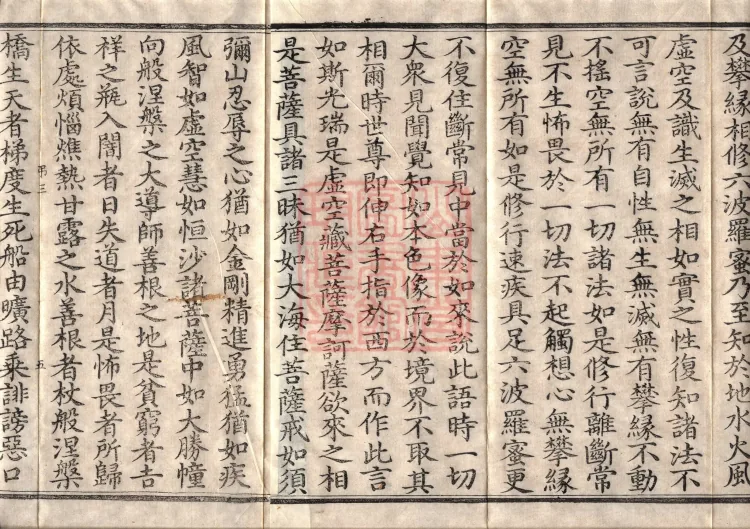 及攀緣相修六波羅蜜乃至知於地水火風
虛空及識生滅之相如實之性復知諸法不
可言說無有自性無生無滅無有攀緣不動
不搖空無所有一切諸法如是修行離斷常
見不生怖畏於一切法不起觸想心無攀緣
空無所有如是修行速疾具足六波羅蜜更
不復住斷常見中當於如來說此語時一切
大衆見聞覺知如本色像而於境界不取其
相爾時世尊即伸右手指於西方而作此言
如斯光瑞是虛空藏菩薩摩訶薩欲來之相
是菩薩具諸三昧猶如大海住菩薩戒如須
彌山忍辱之心猶如金剛精進勇猛猶如疾
風智如虛空慧如恒沙諸菩薩中如大勝幢
向般涅槃之大導師善根之地是貧窮者吉
祥之瓶入闇者日失道者月是怖畏者所歸
依處煩惱燋熱甘露之水善根者杖般涅槃
第三 五
橋生天者梯度生死船由曠路乘誹謗惡口